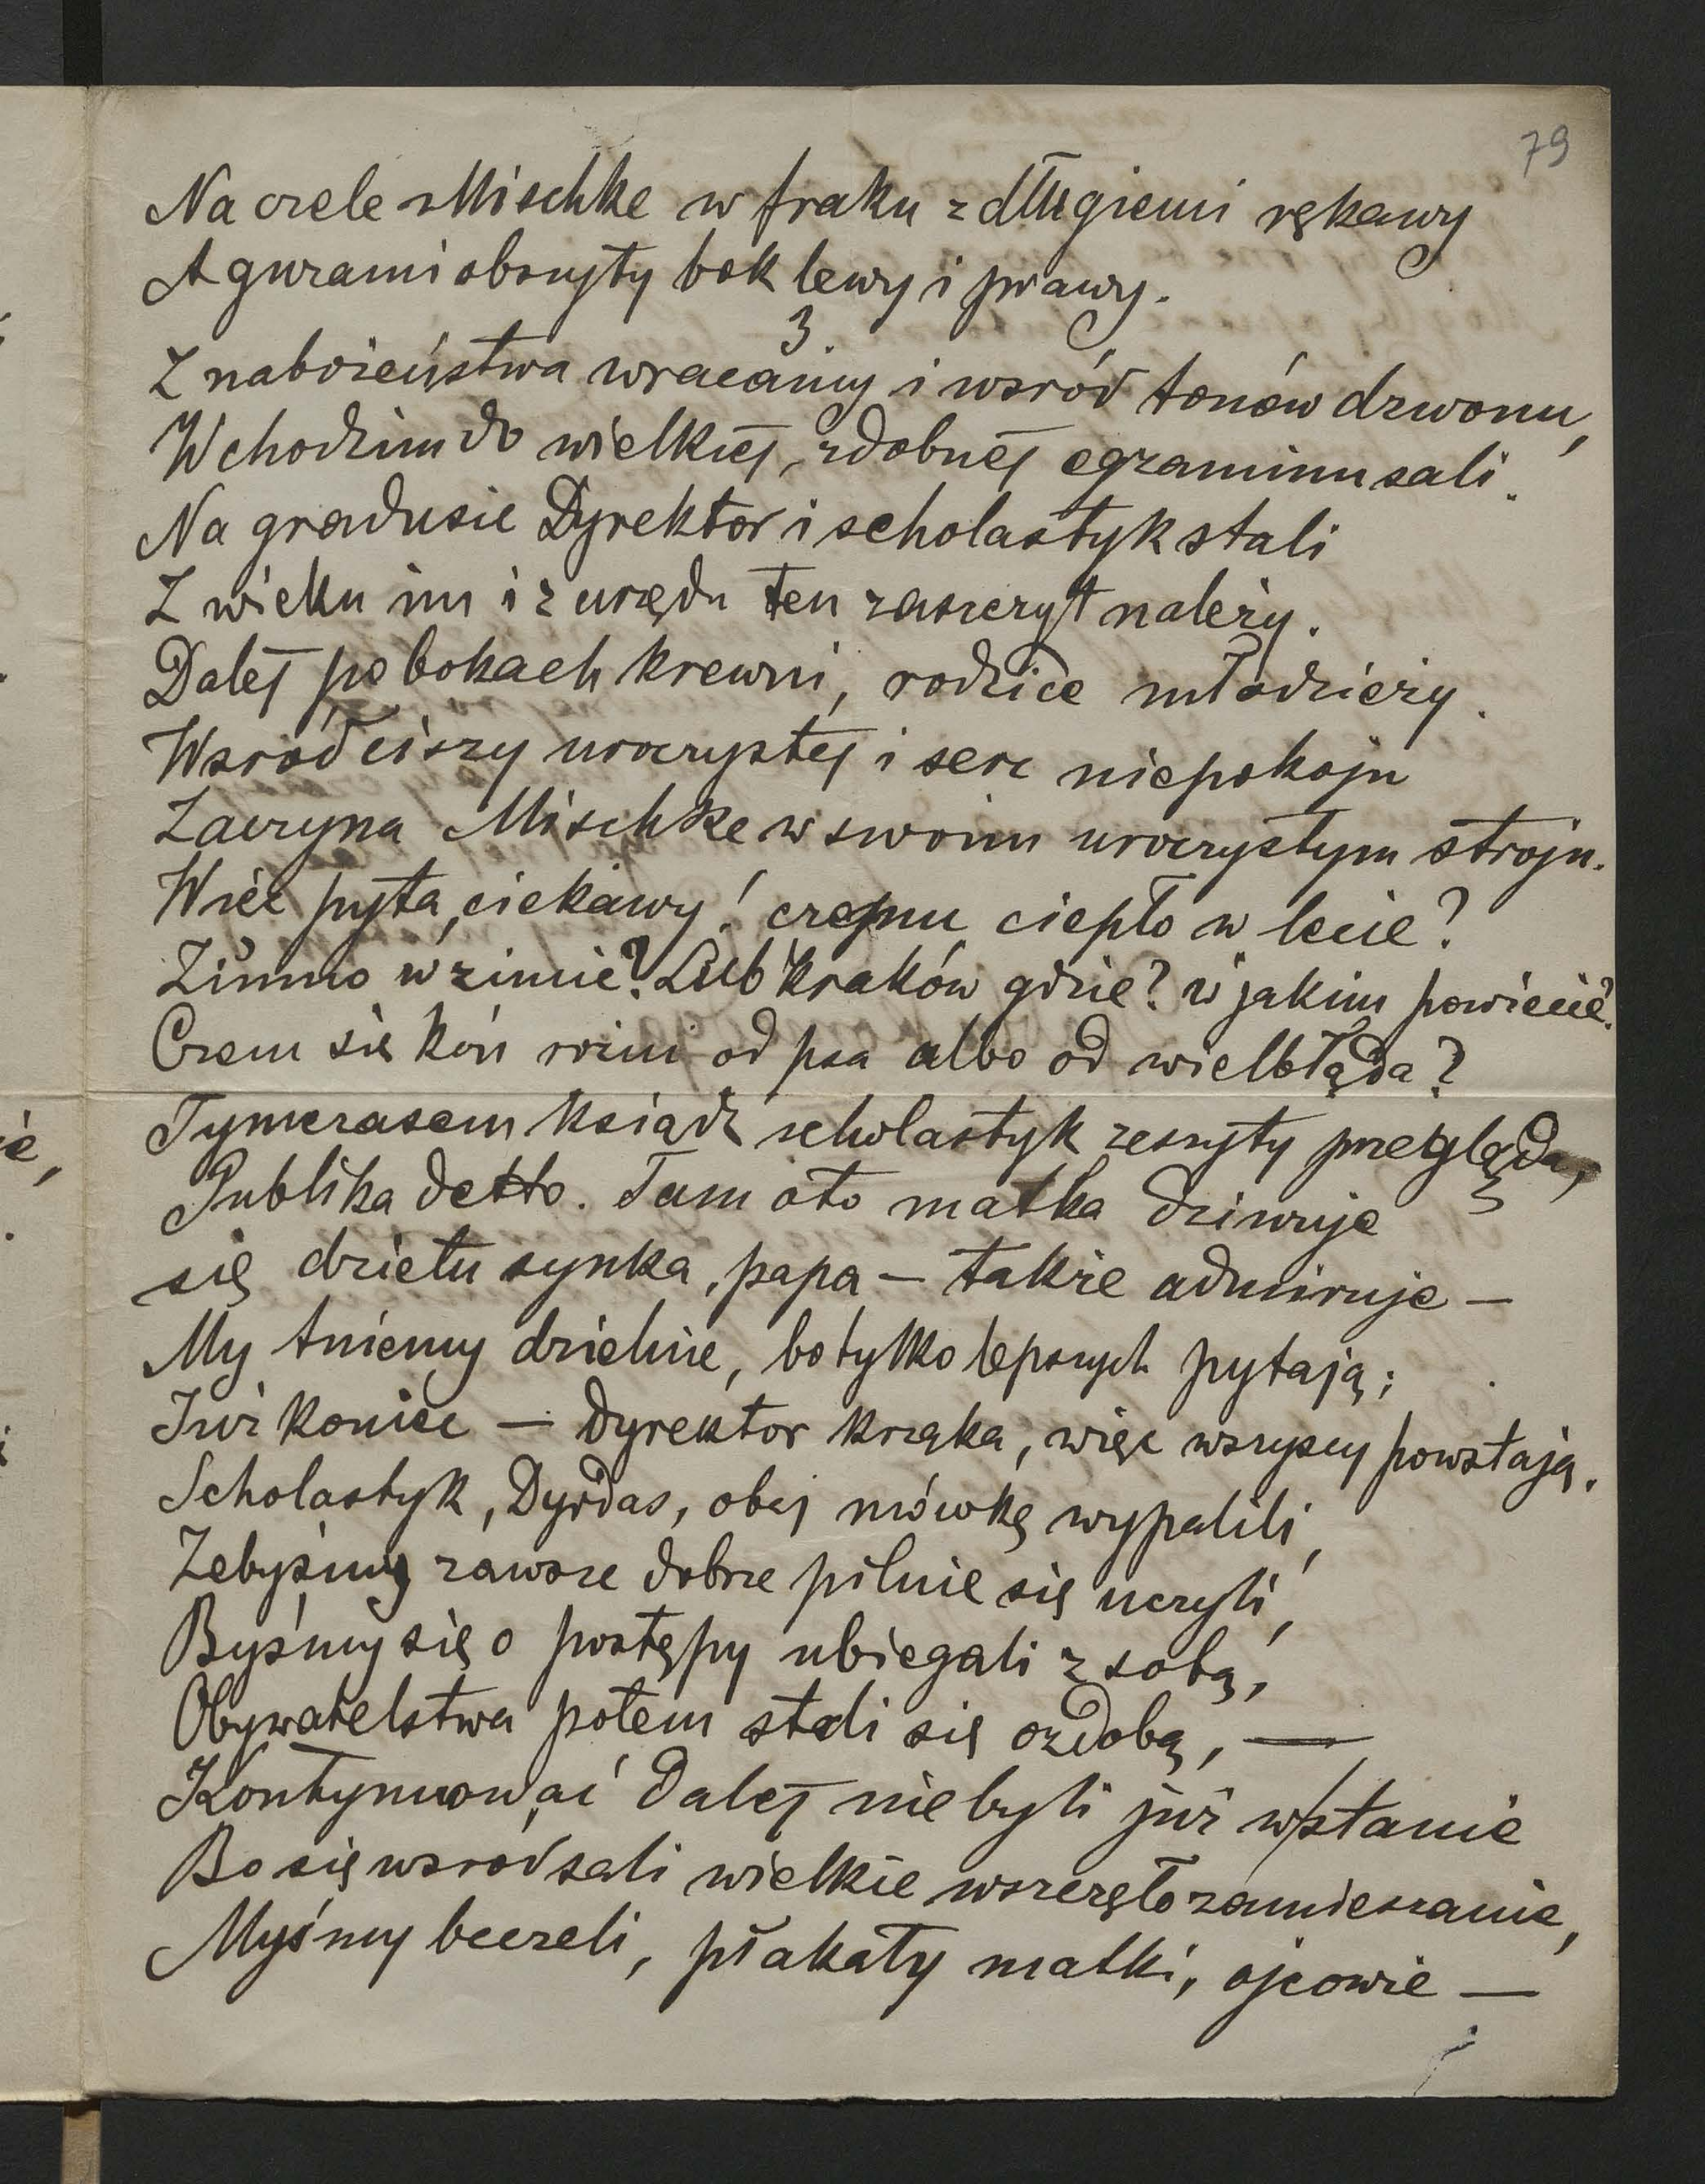 79
Na czele Mischke w fraku z długiemi rękawy
A guzami obszyty bok lewy i prawy.
3.
Z nabożeństwa wracamy i wsród tonów dzwonu,
Wchodzim do wielkiéj, zdobnéj egzaminu sali.
Na gradusie Dyrektor i scholastyk stali
Z wieku im i z urzędu ten zaszczyt należy.
Daléj po bokach krewni, rodzice młodzieży.
Wsród ciszy uroczystéj i serc niepokoju
Zaczyna Mischke w swoim uroczystym stroju.
Więc pyta, ciekawy! czemu ciepło w lecie?
Zimno w zimie? Lub Kraków gdzie? w jakim powiecie?
Czem się koń różni od psa albo od wielbłąda?
Tymczasem ksiądz scholastyk zeszyty przegląda,
Publika detto. Tam oto matka dziwuje
się dziełu synka, papa — także admiruje —
My tniemy dzielnie, bo tylko lepszych pytają;
Już koniec — Dyrektor krząka, więc wszyscy powstają.
Scholastyk, Dyrdas, obaj mówkę wypalili,
Żebyśmy zawsze dobrze pilnie się uczyli,
Byśmy się o postępy ubiegali z sobą,
Obywatelstwa potem stali się ozdobą, —
Kontynuować daléj nie byli już w stanie
Bo się wsród sali wielkie wszczęło zamieszanie,
Myśmy beczeli, płakały matki, ojcowie —